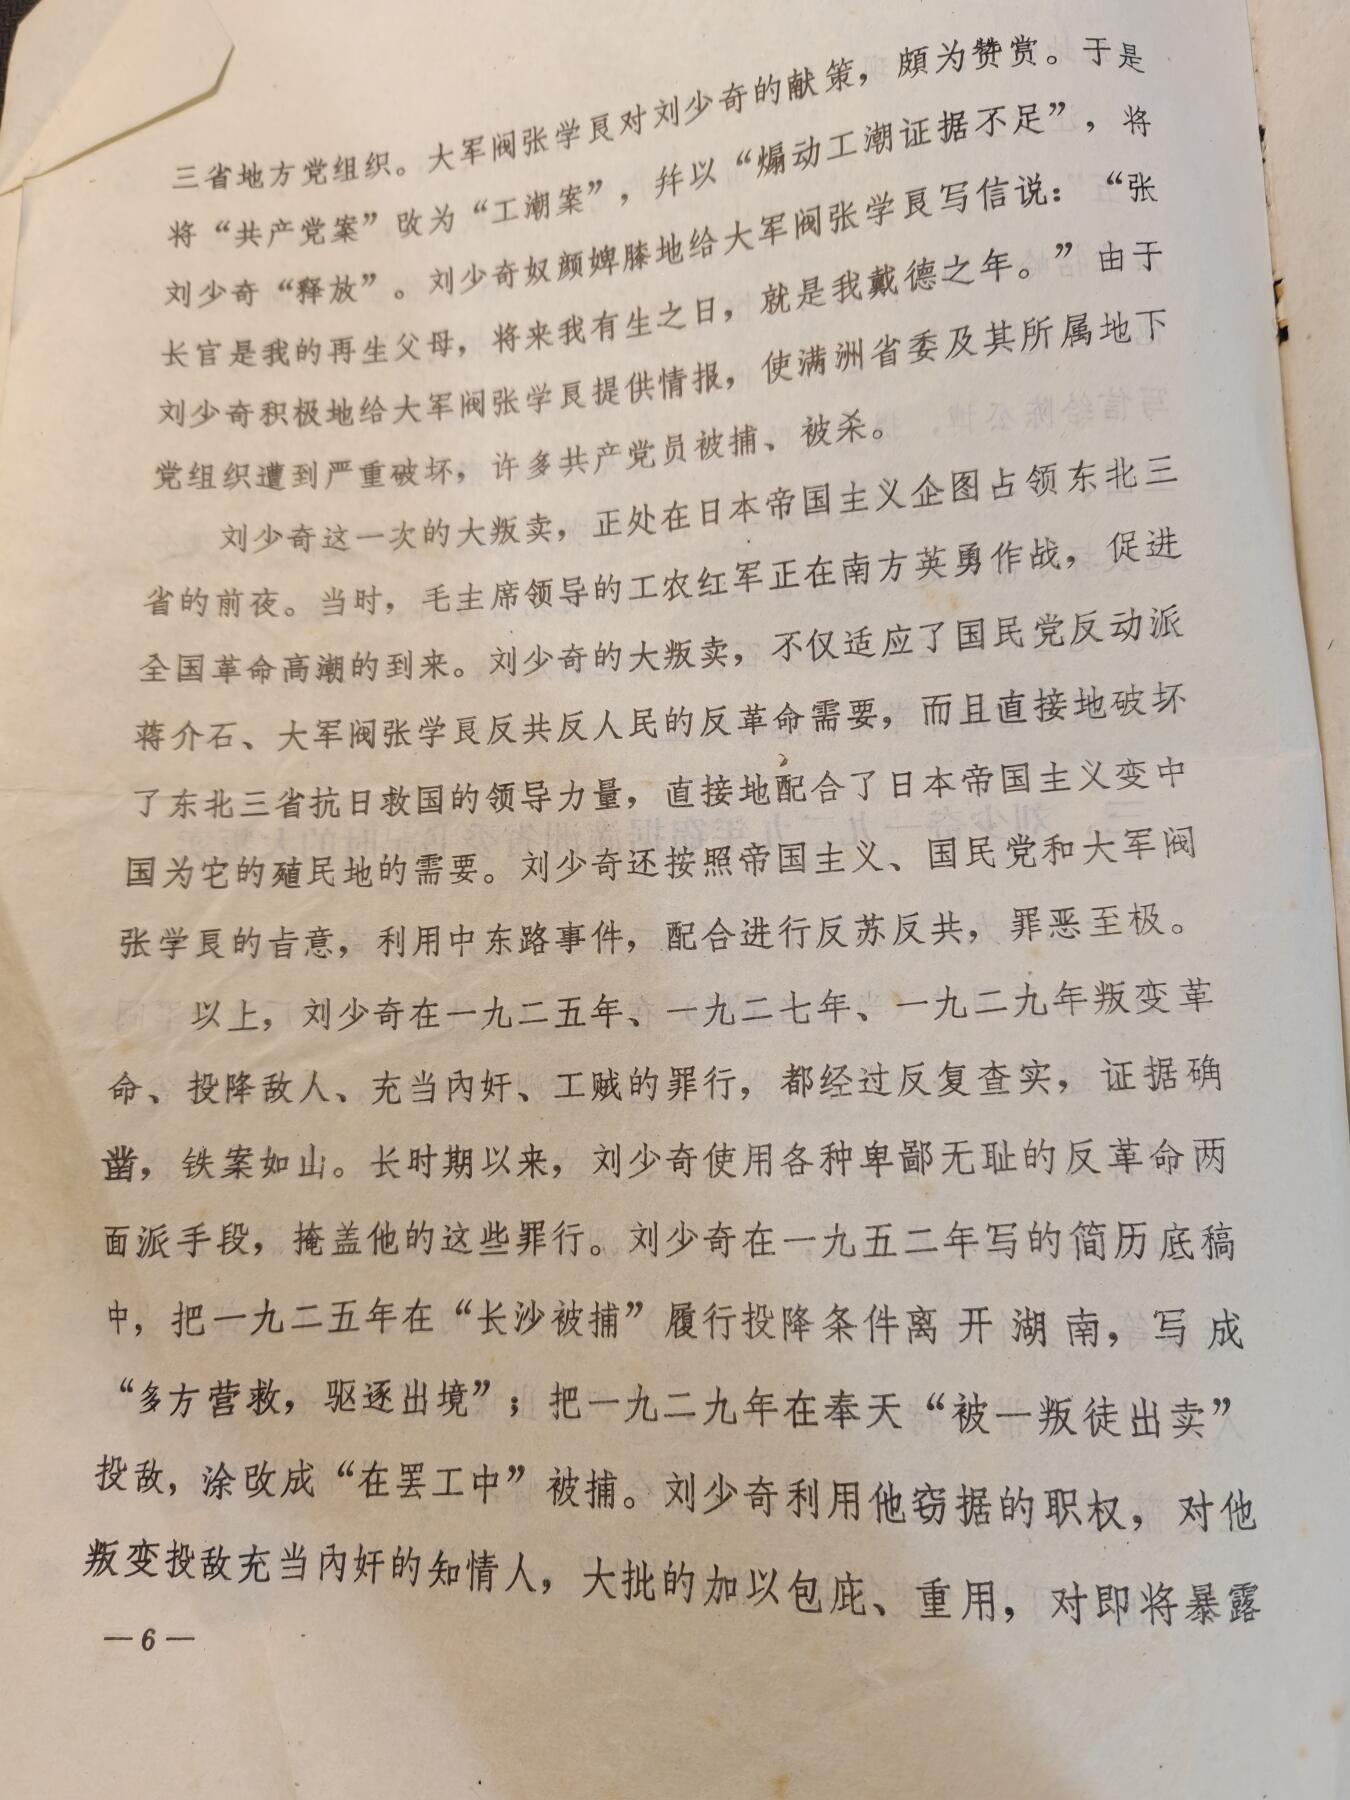 三省地方党组织。大军阀张学良对刘少奇的献策，颇为赞赏。于是
将“共产党案”改为“工潮案”，并以“煽动工潮证据不足”，将
刘少奇“释放”。刘少奇奴颜婢膝地给大军阀张学良写信说：“张
长官是我的再生父母，将来我有生之日，就是我戴德之年。”由于
刘少奇积极地给大军阀张学良提供情报，使满洲省委及其所属地下
党组织遭到严重破坏，许多共产党员被捕、被杀。
刘少奇这一次的大叛卖，正处在日本帝国主义企图占领东北三
省的前夜。当时，毛主席领导的工农红军正在南方英勇作战，促进
全国革命高潮的到来。刘少奇的大叛卖，不仅适应了国民党反动派
蒋介石、大军阀张学良反共反人民的反革命需要，而且直接地破坏
了东北三省抗日救国的领导力量，直接地配合了日本帝国主义变中
国为它的殖民地的需要。刘少奇还按照帝国主义、国民党和大军阀
张学良的旨意，利用中东路事件，配合进行反苏反共，罪恶至极。
以上，刘少奇在一九二五年、一九二七年、一九二九年叛变革
命、投降敌人、充当内奸、工贼的罪行，都经过反复查实，证据确
凿，铁案如山。长时期以来，刘少奇使用各种卑鄙无耻的反革命两
面派手段，掩盖他的这些罪行。刘少奇在一九五二年写的简历底稿
中，把一九二五年在“长沙被捕”履行投降条件离开湖南，写成
“多方营救，驱逐出境”；把一九二九年在奉天“被一叛徒出卖”
投敌，涂改成“在罢工中”被捕。刘少奇利用他窃据的职权，对他
叛变投敌充当内奸的知情人，大批的加以包庇、重用，对即将暴露
—6—